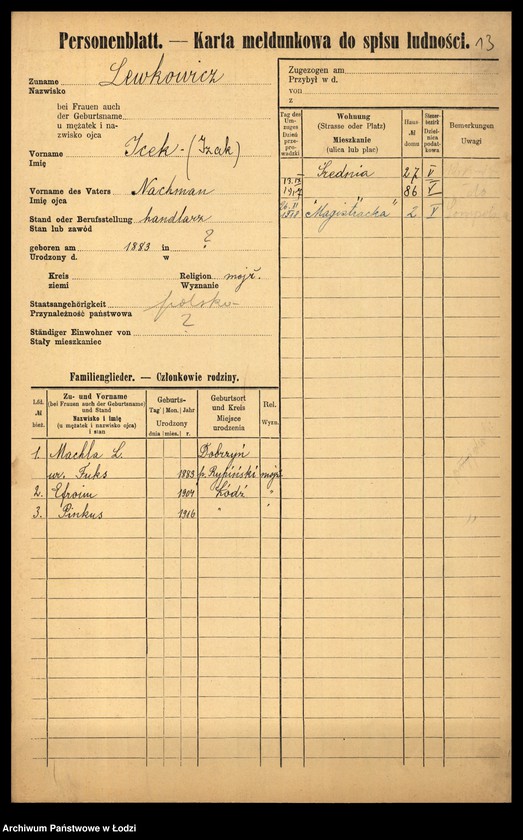 Personenblatt. — Karta meldunkowa do spisu ludności. 13
Zuname Lewkowicz
Nazwisko
bei Frauen auch
der Geburtsname
u mężatek i na-
zwisko ojca
Vorname Icek - (Izak)
Imię
Vorname des Vaters Nachman
Imię ojca
Stand oder Berufsstellung handlarz
Stan lub zawód
geboren am 1883 in ?
Urodzony d. w
Kreis Religion mojż.
ziemi Wyznanie
Staatsangehörigkeit polska
Przynależność państwowa
Ständiger Einwohner von ?
Stały mieszkaniec
Zugezogen am
Przybył w d.
von
z
Tag des Um-zuges Dzień prze-prowadzki
Wohnung
(Strasse oder Platz)
Mieszkanie
(ulica lub plac)
Haus № domu
Steuer-bezirk Dziel-nica podat-kowa
Bemerkungen
Uwagi
Średnia 27 V
1917 " 86 V
"Magistracka" 2 V
Familienglieder. — Członkowie rodziny.
Lfd. № bież.
Zu- und Vorname
(bei Frauen auch der Geburtsname)
und Stand
Nazwisko i imię
(u mężatek i nazwisko ojca)
i stan
Geburts-
Tag Mon. Jahr
Urodzony
dnia mies. r.
Geburtsort
und Kreis
Miejsce
urodzenia
Rel.
Wyzn.
1. Machla L. Dobrzyń
ur. Fuks 1883 p. Rypiński mojż
2. Efroim 1907 Łódź "
3. Pinkus 1916 " "
Archiwum Państwowe w Łodzi